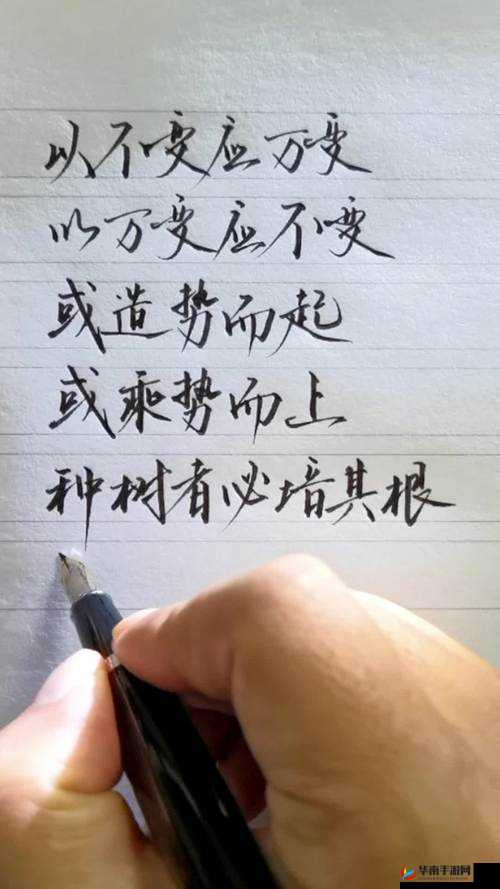 以不变应万变
以万变应不变
或造势而起
或乘势而上
种树者必培其根
华南手游网